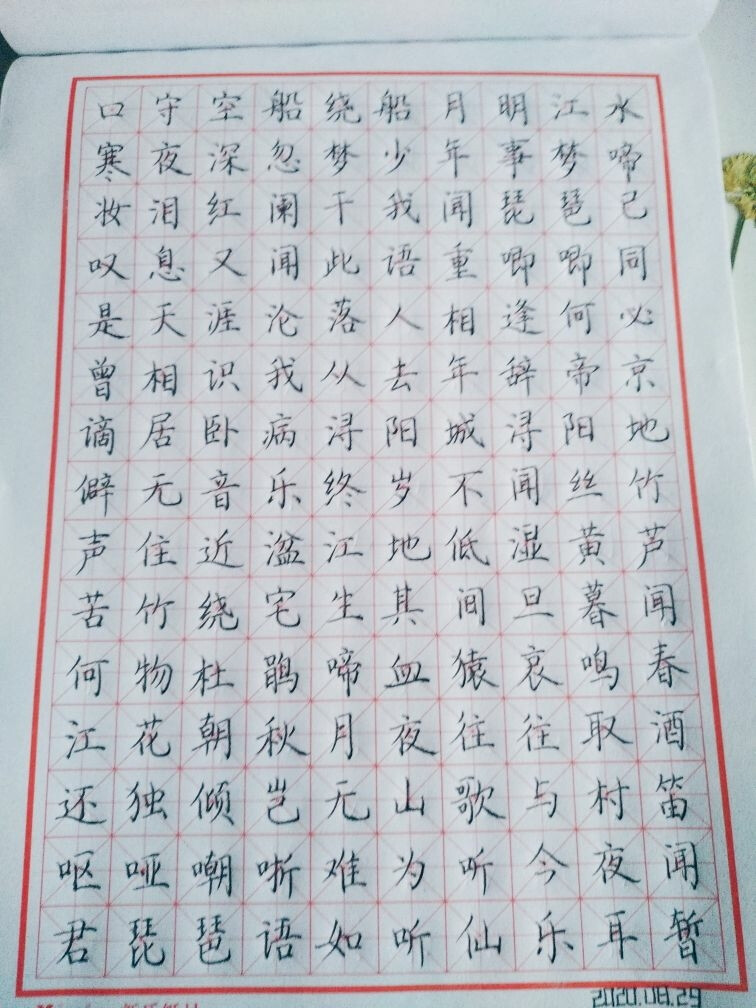 口守空船绕船月明江水
寒夜深忽梦少年事梦啼
妆泪红阑干我闻琵琶已
叹息又闻此语重唧唧同
是天涯沦落人相逢何必
曾相识我从去年辞帝京
谪居卧病浔阳城浔阳地
僻无音乐终岁不闻丝竹
声住近湓江地低湿黄芦
苦竹绕宅生其间旦暮闻
何物杜鹃啼血猿哀鸣春
江花朝秋月夜往往取酒
还独倾岂无山歌与村笛
呕哑嘲哳难为听今夜闻
君琵琶语如听仙乐耳暂
2020.08.29